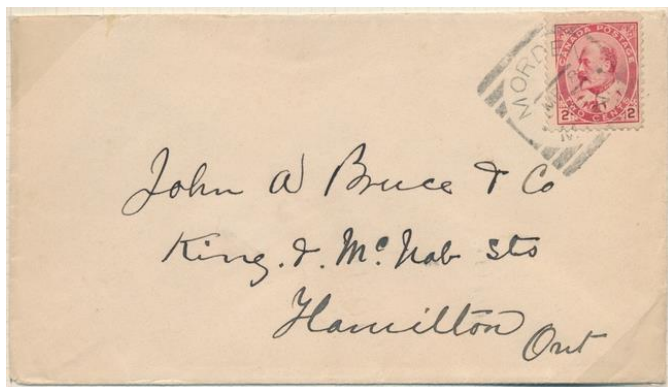 CANADA POSTAGE
2 TWO CENTS 2
MORDEN
John A Bruce & Co
King. & Mc. Nab Sts
Hamilton
Ont